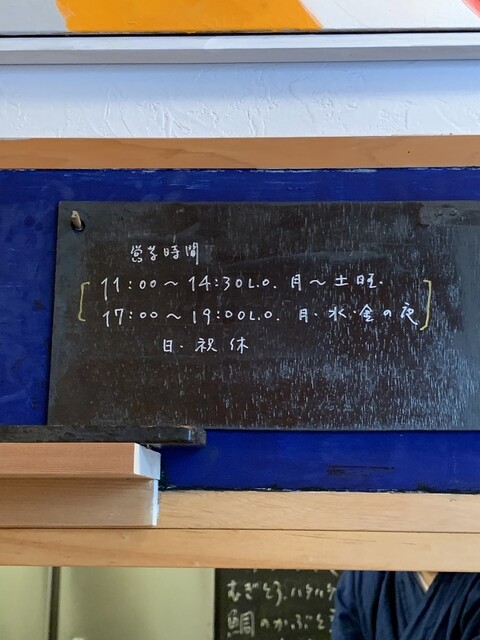 営業時間
11:00～14:30L.O. 月～土曜.
17:00～19:00L.O. 月・水・金の夜
日・祝休
むぎとろ.ハタハタ
鯛のかぶと